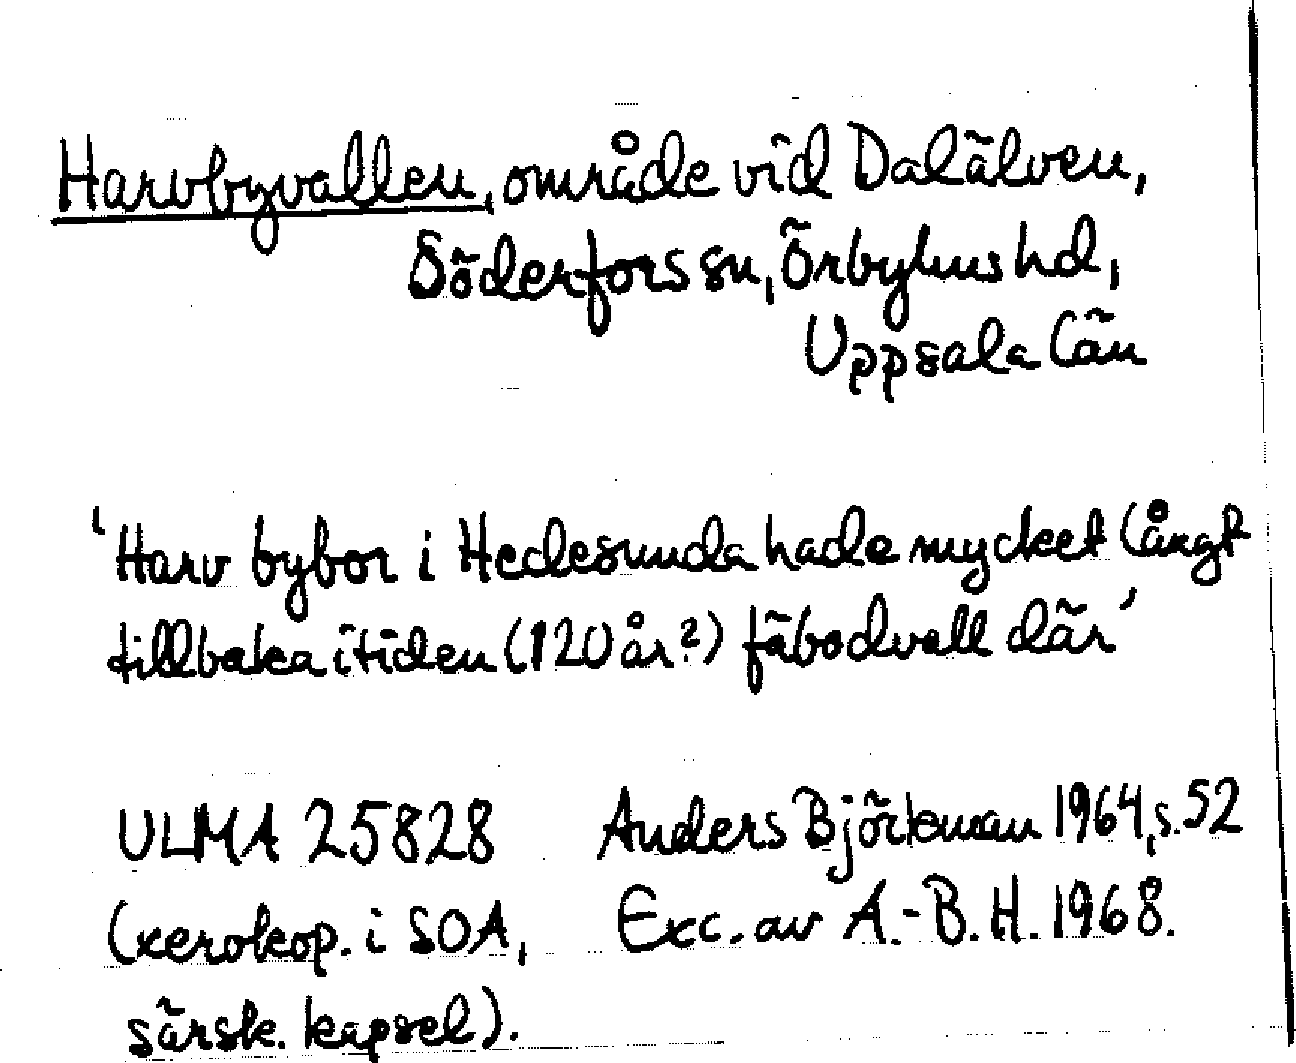 Harvbyvallen, område vid Dalälven,
Söderfors sn, Örbyhus hd,
Uppsala län
'Harv bybor i Hedesunda hade mycket långt
tillbaka i tiden (120 år?) fäbodvall där'
ULMA 25828 Anders Björkman 1964, s. 52
(xerokop. i SOA, Exc. av A.-B. H. 1968.
särsk. kapsel).